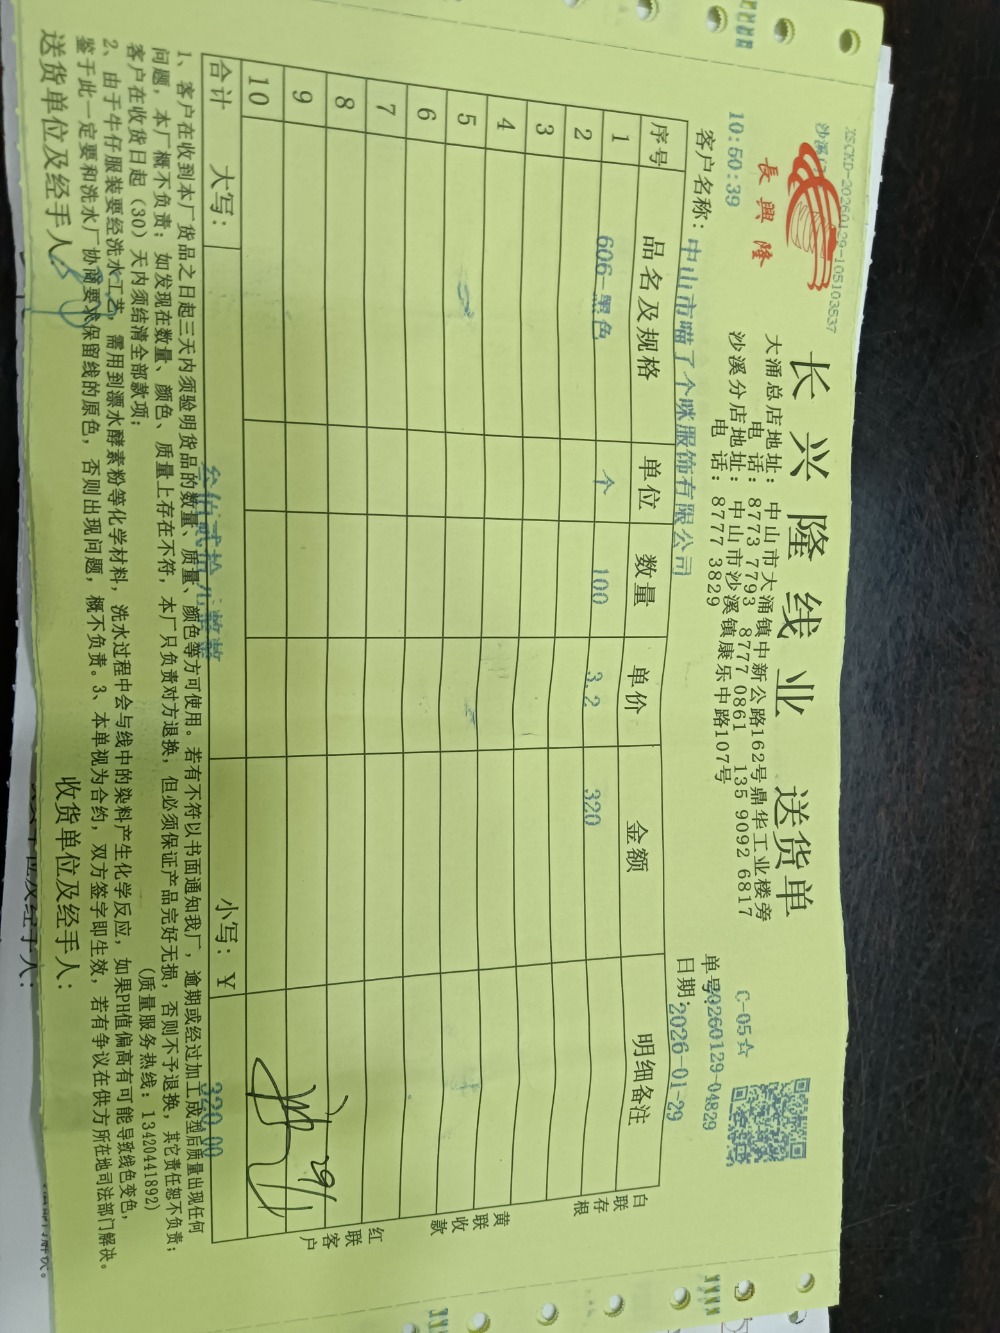 XSCKD-20260129-105103537
沙溪
長興隆
10:50:39
长兴隆线业 送货单
大涌总店地址：中山市大涌镇中新公路162号鼎华工业楼旁
电 话：8773 7793 8777 0861 135 9092 6817
沙溪分店地址：中山市沙溪镇康乐中路107号
电 话：8777 3829
C-05☆
单号:20260129-04829
日期:2026-01-29
客户名称:中山市喵了个咪服饰有限公司
序号 品名及规格 单位 数量 单价 金额 明细备注
1 606-黑色 个 100 3.2 320
2
3
4
5
6
7
8
9
10
合计 大写: 叁佰贰拾元整 小写: ¥ 320.00
白联存根
黄联收款
红联客户
29/1
1、客户在收到本厂货品之日起三天内须验明货品的数量、质量、颜色等方可使用。若有不符以书面通知我厂，逾期或经过加工成型后质量出现任何
问题，本厂概不负责；如发现在数量、颜色、质量上存在不符，本厂只负责对方退换，但必须保证产品完好无损，否则不予退换，其它责任恕不负责；
客户在收货日起（30）天内须结清全部款项； (质量服务热线：13420441892)
2、由于牛仔服装要经洗水工艺，需用到漂水酵素粉等化学材料，洗水过程中会与线中的染料产生化学反应，如果PH值偏高有可能导致线色变色，
鉴于此一定要和洗水厂协商要求保留线的原色，否则出现问题，概不负责。3、本单视为合约，双方签字即生效，若有争议在供方所在地司法部门解决。
送货单位及经手人: 收货单位及经手人: